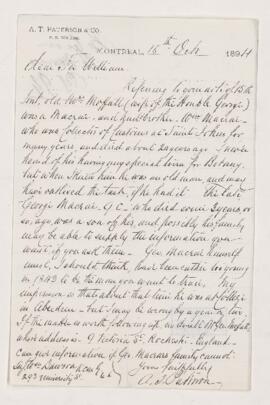 A. T. PATERSON & CO.
MONTREAL, 16th Oct. 1894
Dear Sir William
Referring to your note of 15th
Inst, old Mrs Moffatt (wife of the Honble George)
was a Macrae, and her brother Wm Macrae
who was Collector of Customs at Saint John for
many years and died about 20 years ago I never
heard of his having any special turn for Botany
but when I knew him he was an old man, and may
have outlived the taste, if he had it The late
George Macrae Q.C. who died some 2 years or
so, ago, was a son of his, and possibly his family
may be able to supply the information you
want if you ask them - Geo. Macrae himself
must, I should think, have been rather too young
in 1843 to be the man you want to trace, My
impression is that about that time he was at College
in Aberdeen but I may be wrong by a year or two.
If the matter is worth following up, no doubt Mrs Moffatt,
whose address is Victoria St. Rochester, England
can give information if Geo Macrae's family cannot.
Yours faithfully
A. T. Paterson
Sir Wm Dawson
293 University St.